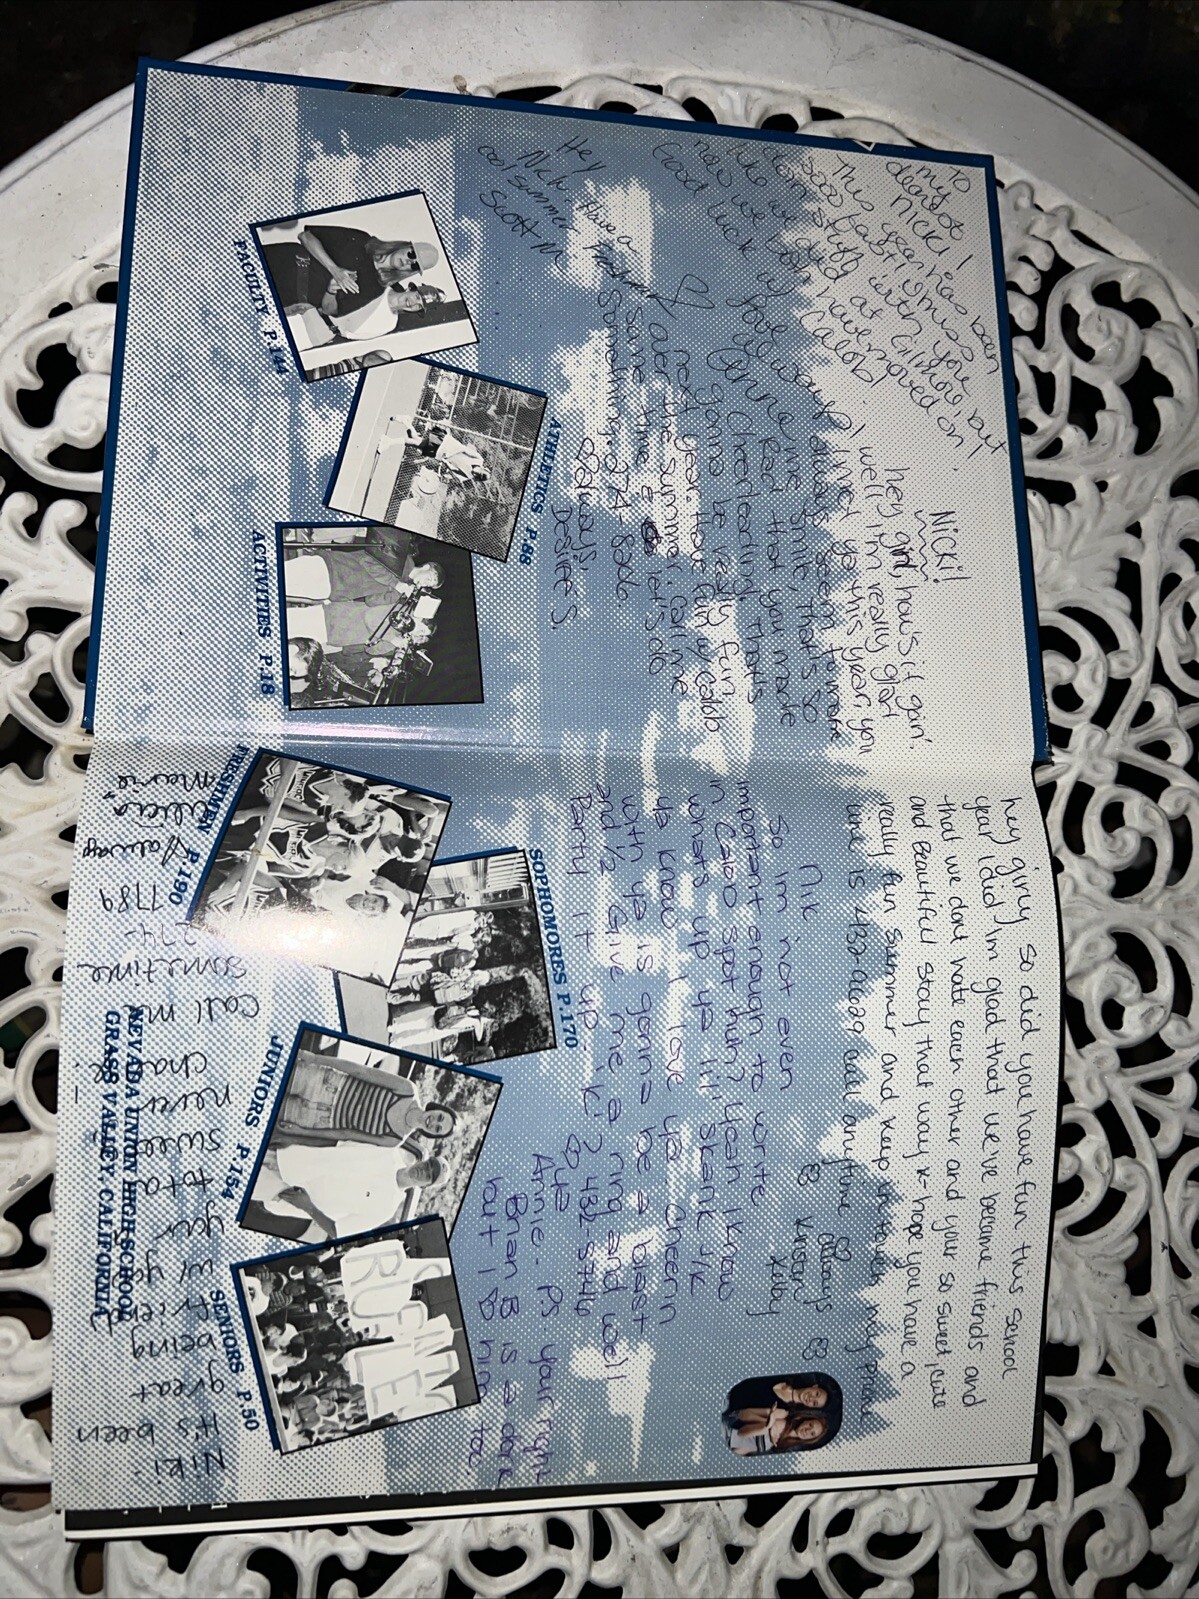 To
my
dearest
Nicki!
This year has been
sooo fast! I miss
doin stuff with you
like we did at Gilmore, but
now we both have moved on!
Good luck w/ Caleb!
Love always,
Jenna
Hey
Nick. Have a
cool summer
Scott M.
Nicki!
hey girl, how's it goin'.
well I'm really glad
I met ya this year, you
always seem to make
me smile, that's so
Rad that you made
Cheerleading, that's
gonna be really fun
next year. have fun w/ Caleb
over the summer. Call me
some time & let's do
something. 274-8206.
Always.
Desiree S
FACULTY P.144
ATHLETICS P.88
ACTIVITIES P.18
hey girly, so did you have fun this school
year I did, I'm glad that we've became friends and
that we dont hate each other and your so sweet, cute
and beautiful stay that way k- hope you have a
really fun summer and keep in touch my phone
line is 432-0629 call anytime
always
Kirsten
Kelby
Nik
so im not even
important enough to write
in Caleb spot huh? yeah I know
whats up ya lil' skank J/K
Ya know I love ya Cheerin
with ya is gonna be a blast
and 1/2 give me a ring and we'll
Party it up 'k? 432-5746
Bye
Annie. Ps. your right
Brian B is a dork
but I ♡ him to.
FRESHMEN P.190
SOPHOMORES P.170
JUNIORS P.154
SENIORS P.50
RULES
NEVADA UNION HIGH SCHOOL
GRASS VALLEY, CALIFORNIA
Niki
It's been
great
being
friends
w/ you
your
tota
sweet
never
change!
Call me
sometime
274-
7789
Always
Alicia
Marie